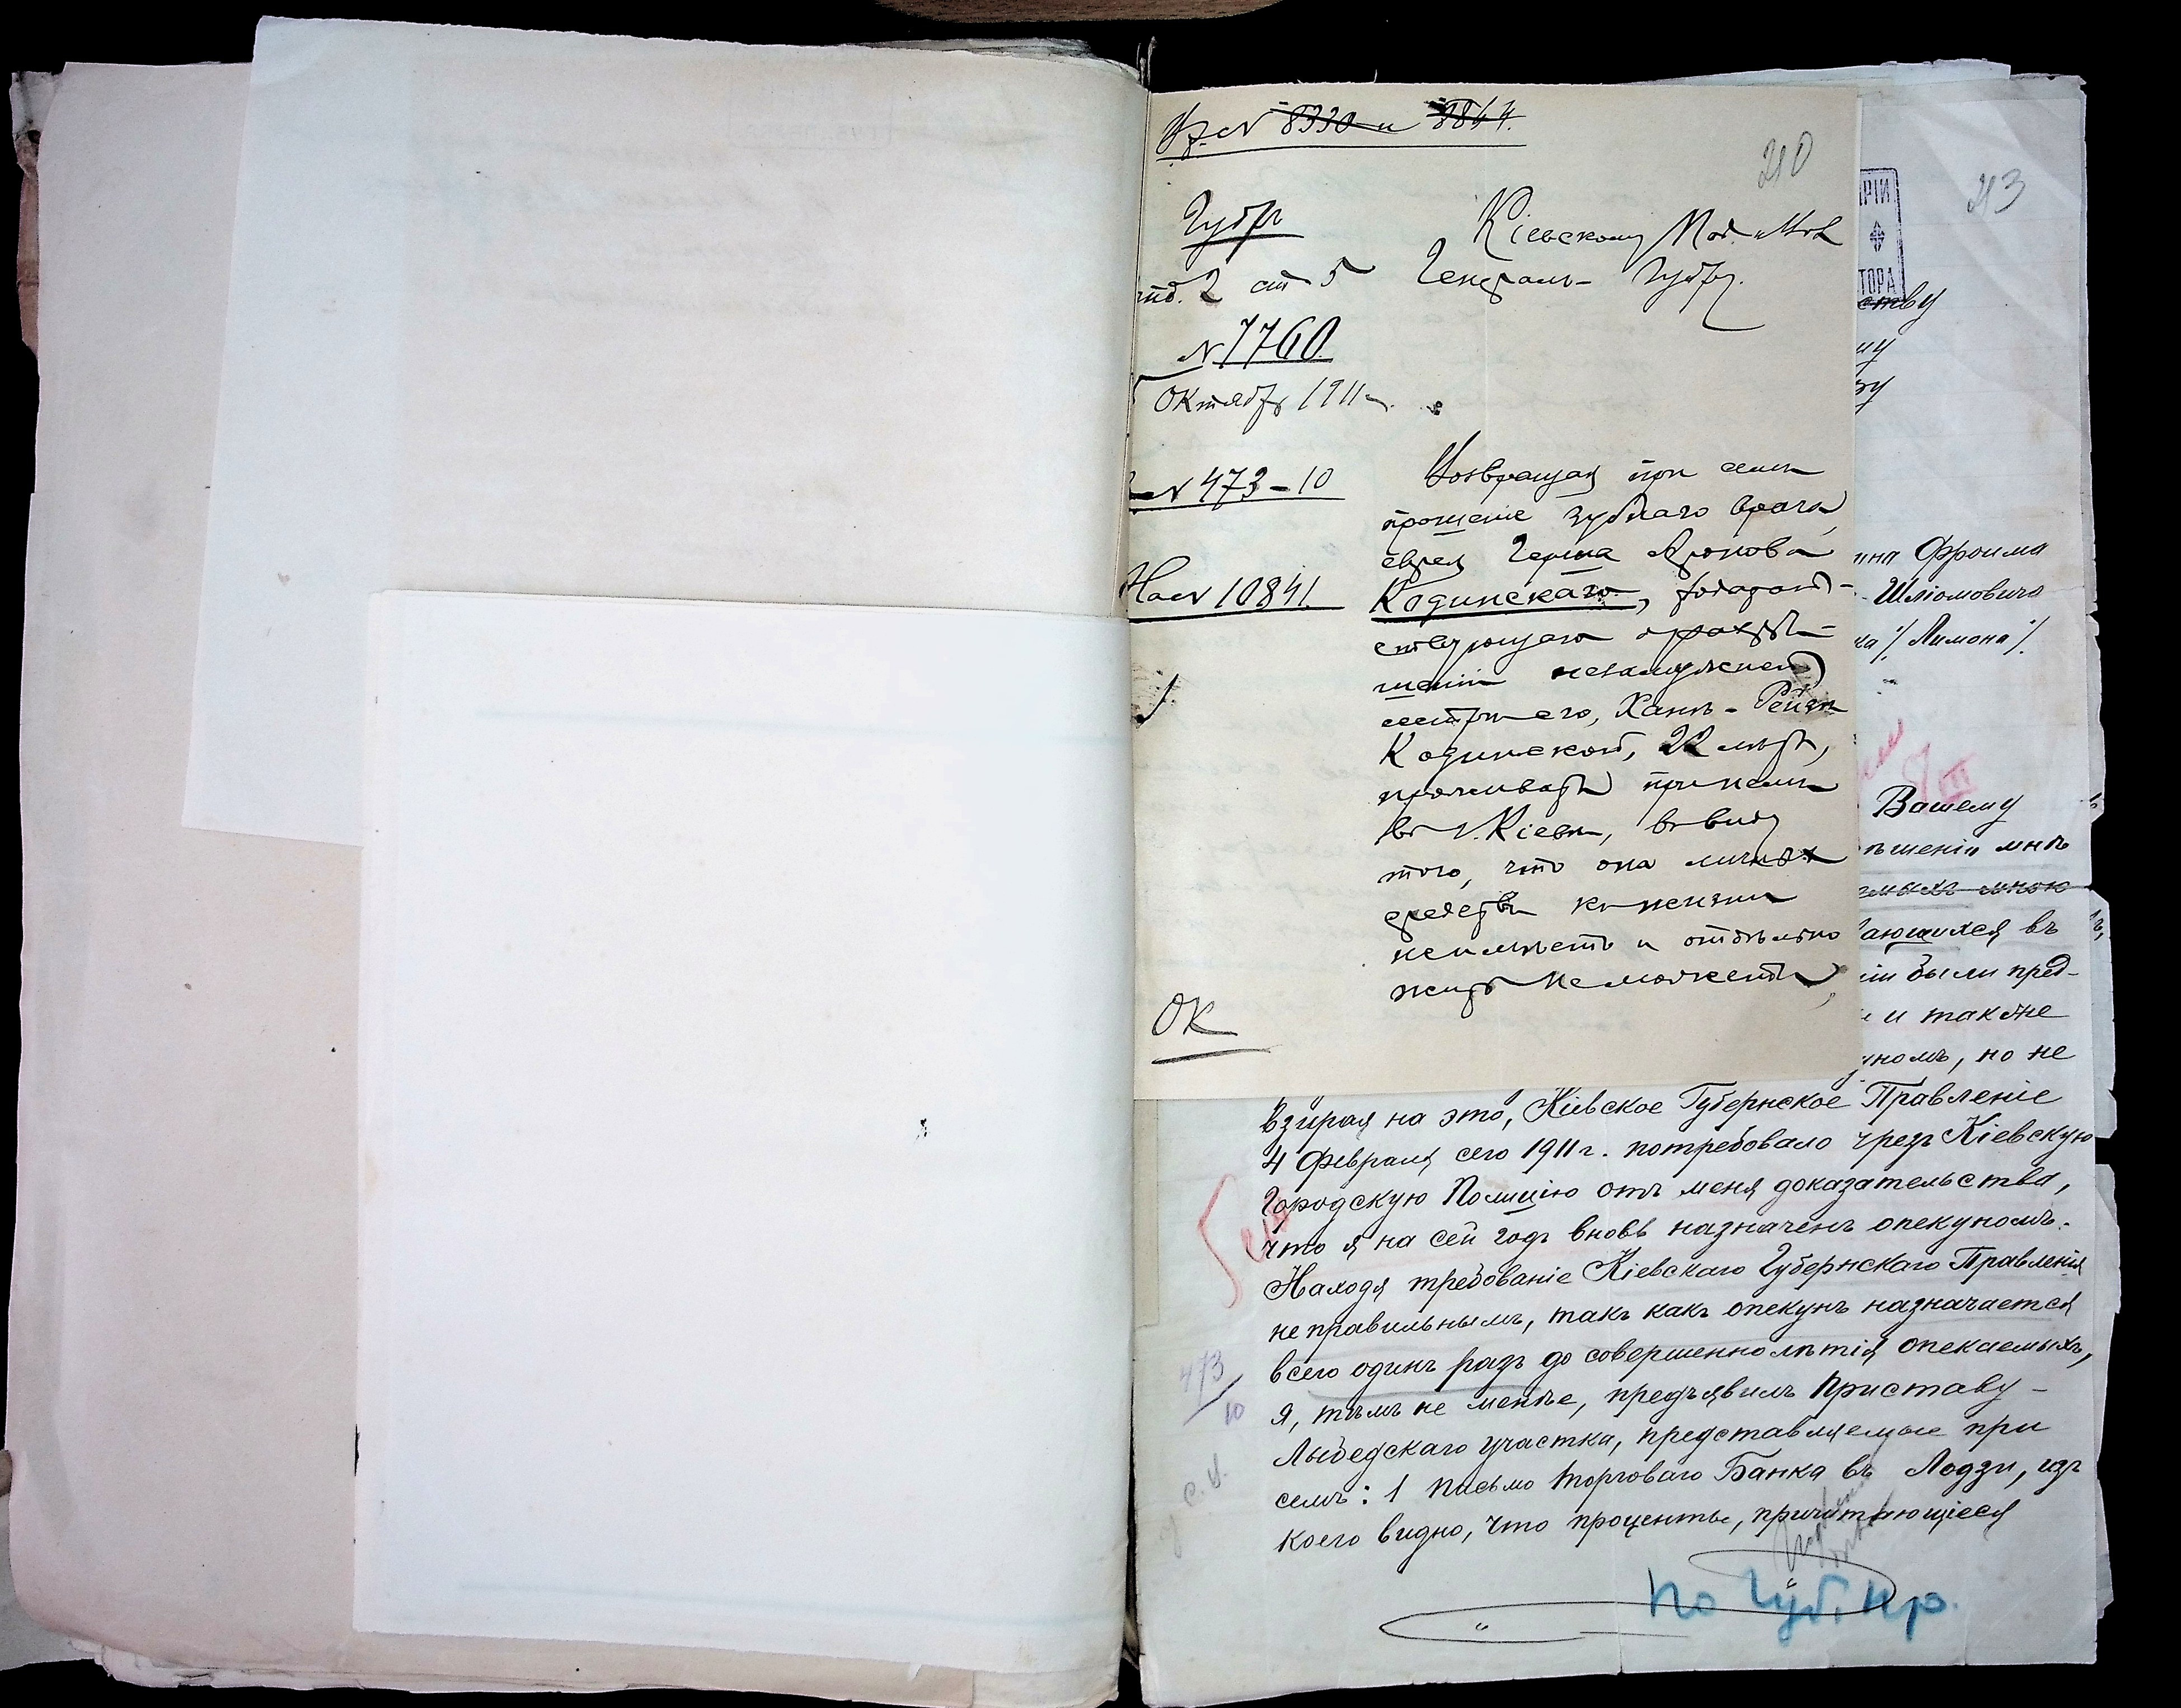 № 8330 и 8864.
210
Губр
Кіевскому Под. и Вол.
отд. 2 ст 5
Генералъ-Губру.
№ 7760
Октябр 1911 г.
№ 473-10
На № 10841.
Возвращая при семъ
прошеніе зубнаго врача,
еврея Герша Аронова
Кодинскаго, ходатай-
ствующаго о разрѣ-
шеніи незамужней
сестрѣ его, Ханѣ-Рейзѣ
Кодинской, 22 лѣтъ,
проживать при немъ
въ г. Кіевѣ, въ виду
того, что она личныхъ
средствъ къ жизни
не имѣетъ и отдѣльно
жить не можетъ,
ОК
213
РІИ
ТОРА
ству
му
ру
ина Фроима
Шліомовича
ка /. Лимона /.
Вашему
ѣшеніи мнѣ
емыхъ мною
ающихся въ
іи были пред-
и также
уномъ, но не
взирая на это, Кіевское Губернское Правленіе
4 февраля сего 1911 г. потребовало чрезъ Кіевскую
Городскую Полицію отъ меня доказательства,
что я на сей годъ вновь назначенъ опекуномъ.
Находя требованіе Кіевскаго Губернскаго Правленія
неправильнымъ, такъ какъ опекунъ назначается
всего одинъ разъ до совершеннолѣтія опекаемыхъ,
я, тѣмъ не менѣе, предъявилъ Приставу-
Лыбедскаго участка, представляемые при
семъ: 1 письмо Торговаго Банка въ Лодзи, изъ
коего видно, что проценты, причитающіеся
473
10
с. д.
По Губ. пр.